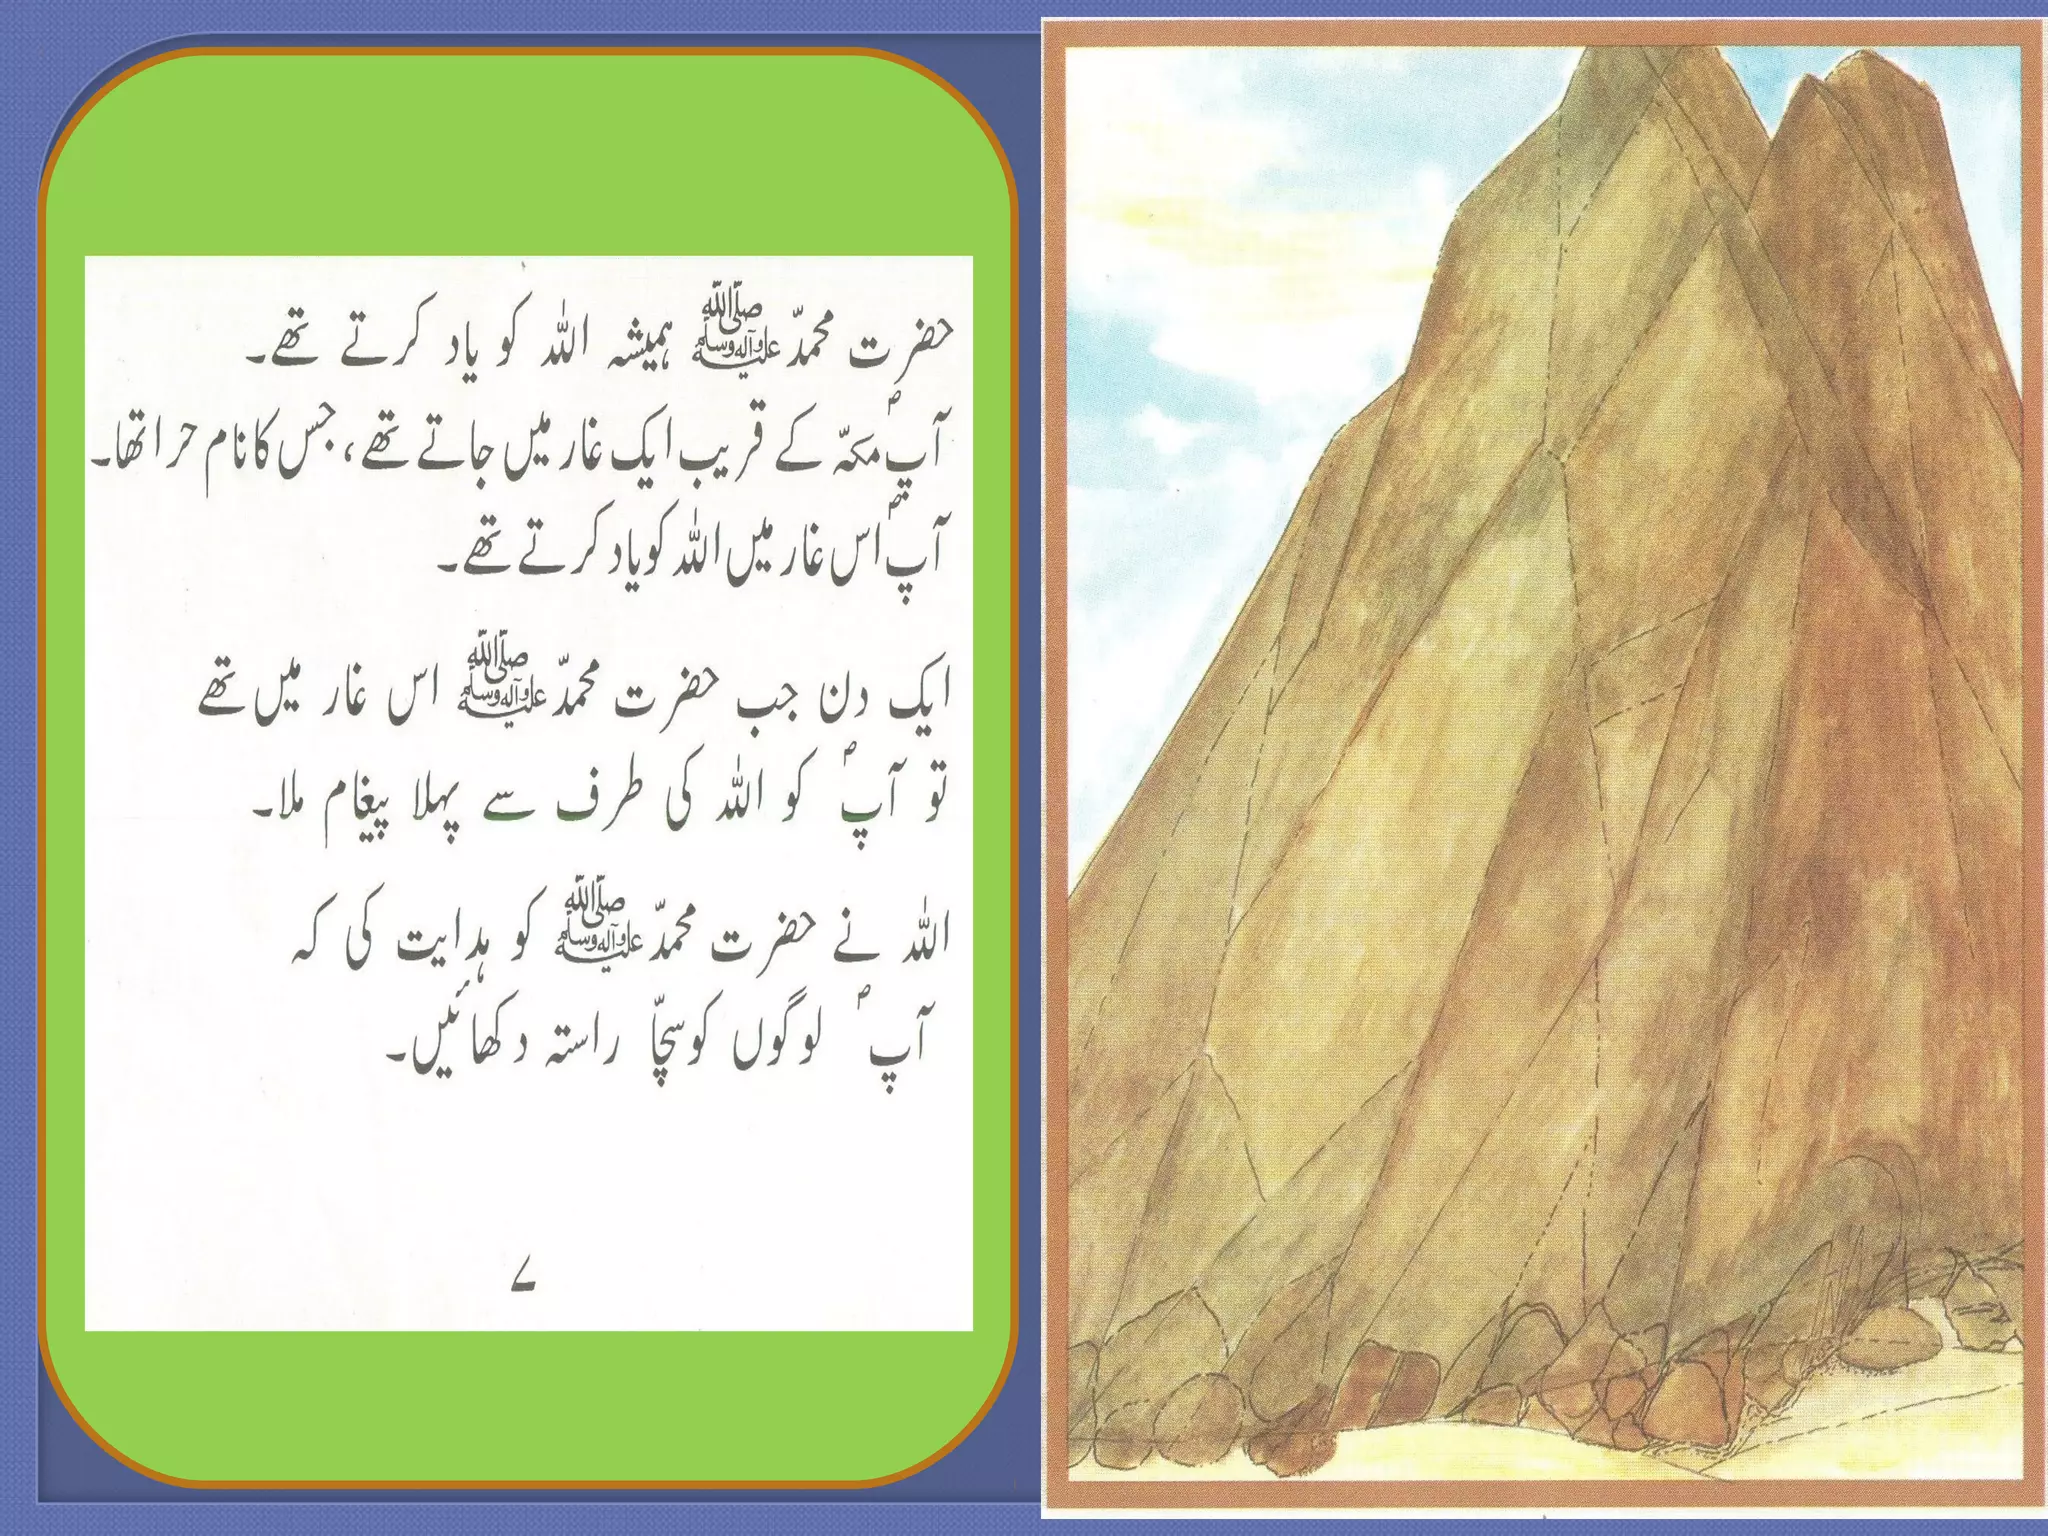 حضرت محمدّ صلى الله عليه وآله وسلم ہمیشہ اللہ کو یاد کرتے تھے۔
آپؐ مکہّ کے قریب ایک غار میں جاتے تھے، جس کا نام حرا تھا۔
آپؐ اس غار میں اللہ کو یاد کرتے تھے۔
ایک دن جب حضرت محمدّ صلى الله عليه وآله وسلم اس غار میں تھے
تو آپؐ کو اللہ کی طرف سے پہلا پیغام ملا۔
اللہ نے حضرت محمدّ صلى الله عليه وآله وسلم کو ہدایت کی کہ
آپؐ لوگوں کو سچاّ راستہ دکھائیں۔
۷